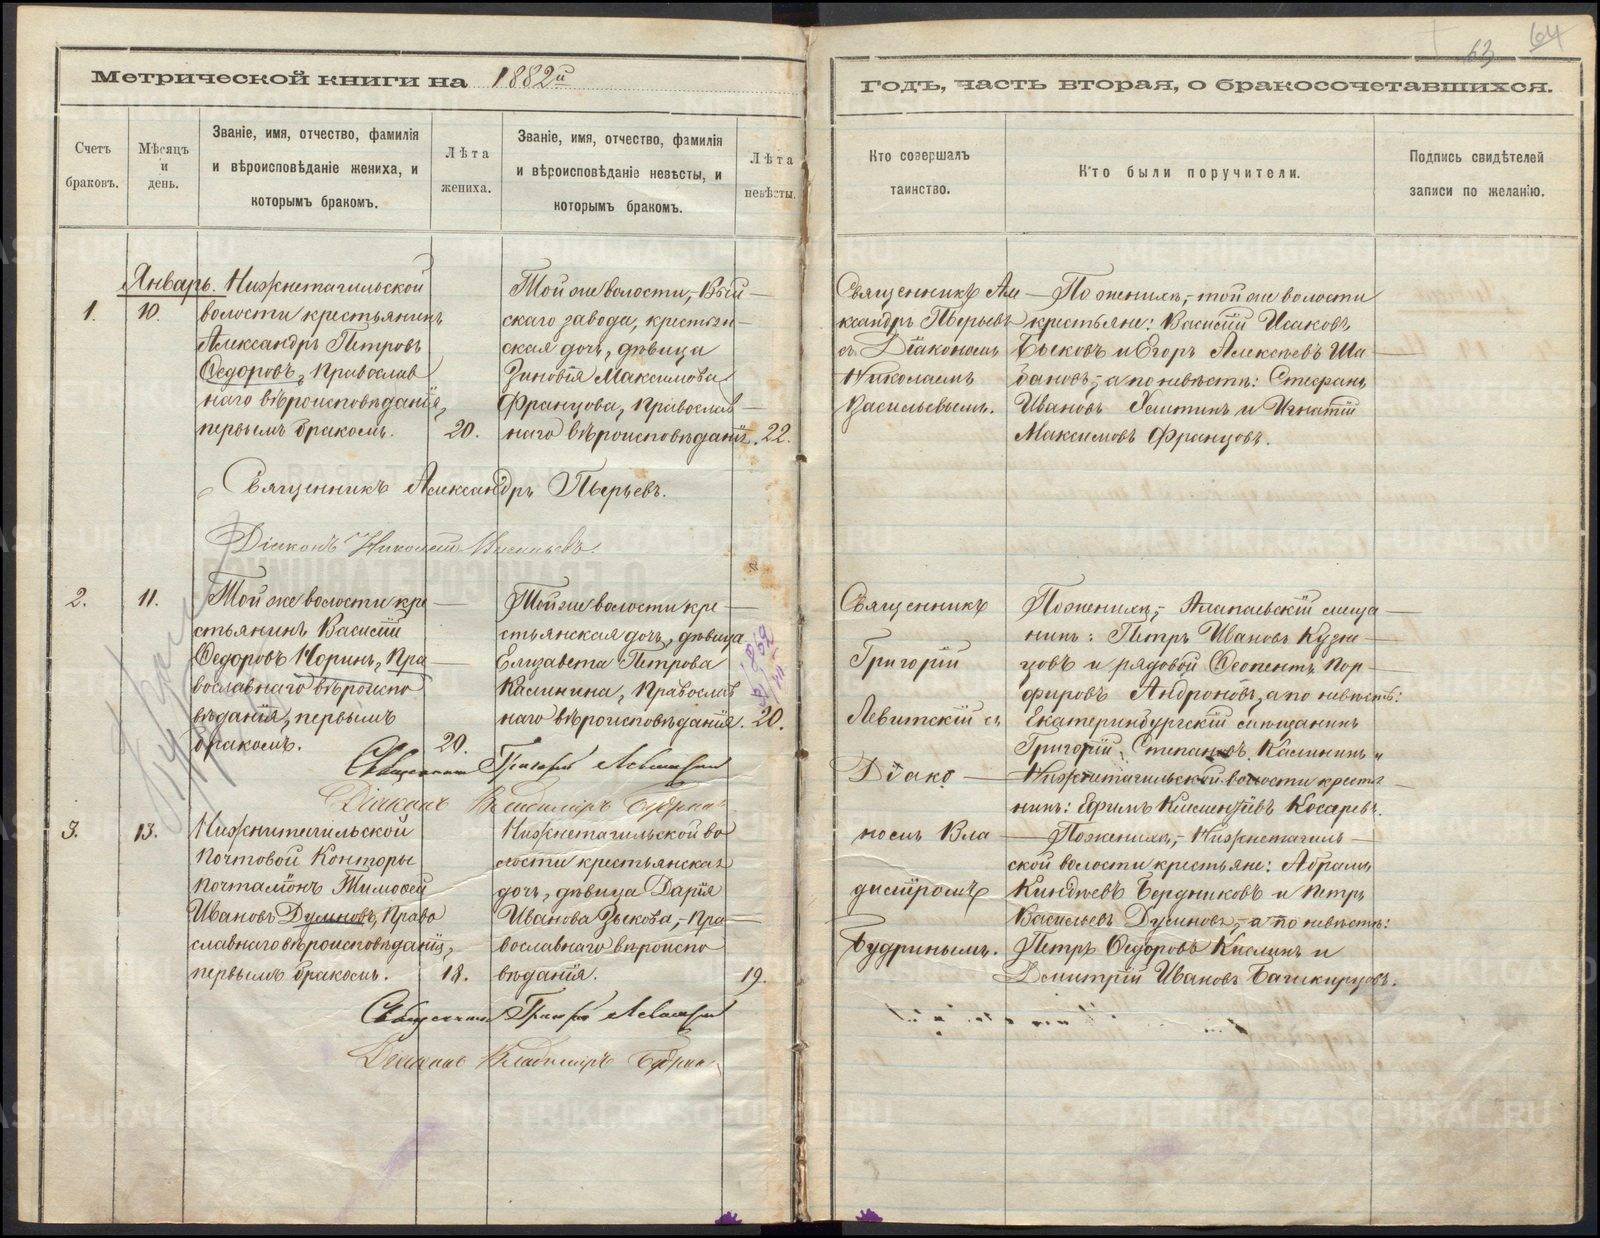 63
64
Метрической книги на 1882й
годъ, часть вторая, о бракосочетавшихся.
Счетъ браковъ.
Мѣсяцъ и день.
Званіе, имя, отчество, фамилія и вѣроисповѣданіе жениха, и которымъ бракомъ.
Лѣта жениха.
Званіе, имя, отчество, фамилія и вѣроисповѣданіе невѣсты, и которымъ бракомъ.
Лѣта невѣсты.
Кто совершалъ таинство.
Кто были поручители.
Подпись свидѣтелей записи по желанію.
Январь.
1.
10.
Нижнетагильской
волости крестьянинъ
Александръ Петровъ
Ѳедоровъ, Православ
наго вѣроисповѣданія,
первымъ бракомъ.
20.
Той же волости, Вый-
скаго завода, крестьян-
ская дочь, дѣвица
Зиновія Максимова
Францова, Православ-
наго вѣроисповѣданія.
22.
Священникъ Але
ксандръ Пырьевъ
съ Діакономъ
Николаемъ
Васильевымъ.
По женихѣ, той же волости
крестьяне: Василій Исаковъ
Быковъ и Егоръ Алексѣевъ Ша-
бановъ, а по невѣстѣ: Стефанъ
Ивановъ и Игнатій
Максимовъ Францовъ.
Священникъ Александръ Пырьевъ.
Діаконъ Николай Васильевъ.
2.
11.
Той же волости кре-
стьянинъ Василій
Ѳедоровъ Норинъ, Пра-
вославнаго вѣроиспо
вѣданія, первымъ
бракомъ.
20.
Той же волости кре-
стьянская дочь, дѣвица
Елизавета Петрова
Калинина, Православ
наго вѣроисповѣданія.
20.
Священникъ
Григорій
Левитскій съ
Діако-
номъ Вла
диміромъ
Будринымъ.
По женихѣ, Алапаевскій мѣща-
нинъ: Петръ Ивановъ Кузне-
цовъ и рядовой Ѳеопентъ Пор-
фировъ Андроновъ, а по невѣстѣ:
Екатеринбургскій мѣщанинъ
Григорій Степановъ Калининъ и
Нижнетагильской волости кресть
нинъ: Ефимъ Климентіевъ Косаревъ.
Священникъ Григорій Левитскій
Діаконъ Владиміръ Будринъ
3.
13.
Нижнетагильской
Почтовой Конторы
Почталіонъ Тимоѳей
Ивановъ Думновъ, Право
славнаго вѣроисповѣданія,
первымъ бракомъ.
18.
Нижнетагильской во
лости крестьянская
дочь, дѣвица Дарія
Иванова Зыкова, Пра-
вославнаго вѣроиспо
вѣданія.
19.
По женихѣ, Нижнетагиль-
ской волости крестьяне: Абрамъ
Киндѣевъ Бердниковъ и Петръ
Васильевъ Думновъ, а по невѣстѣ:
Петръ Ѳедоровъ Кислинъ и
Димитрій Ивановъ Башкирцовъ.
Священникъ Григорій Левитскій
Діаконъ Владиміръ Будринъ
METRIKI.GASO-URAL.RU